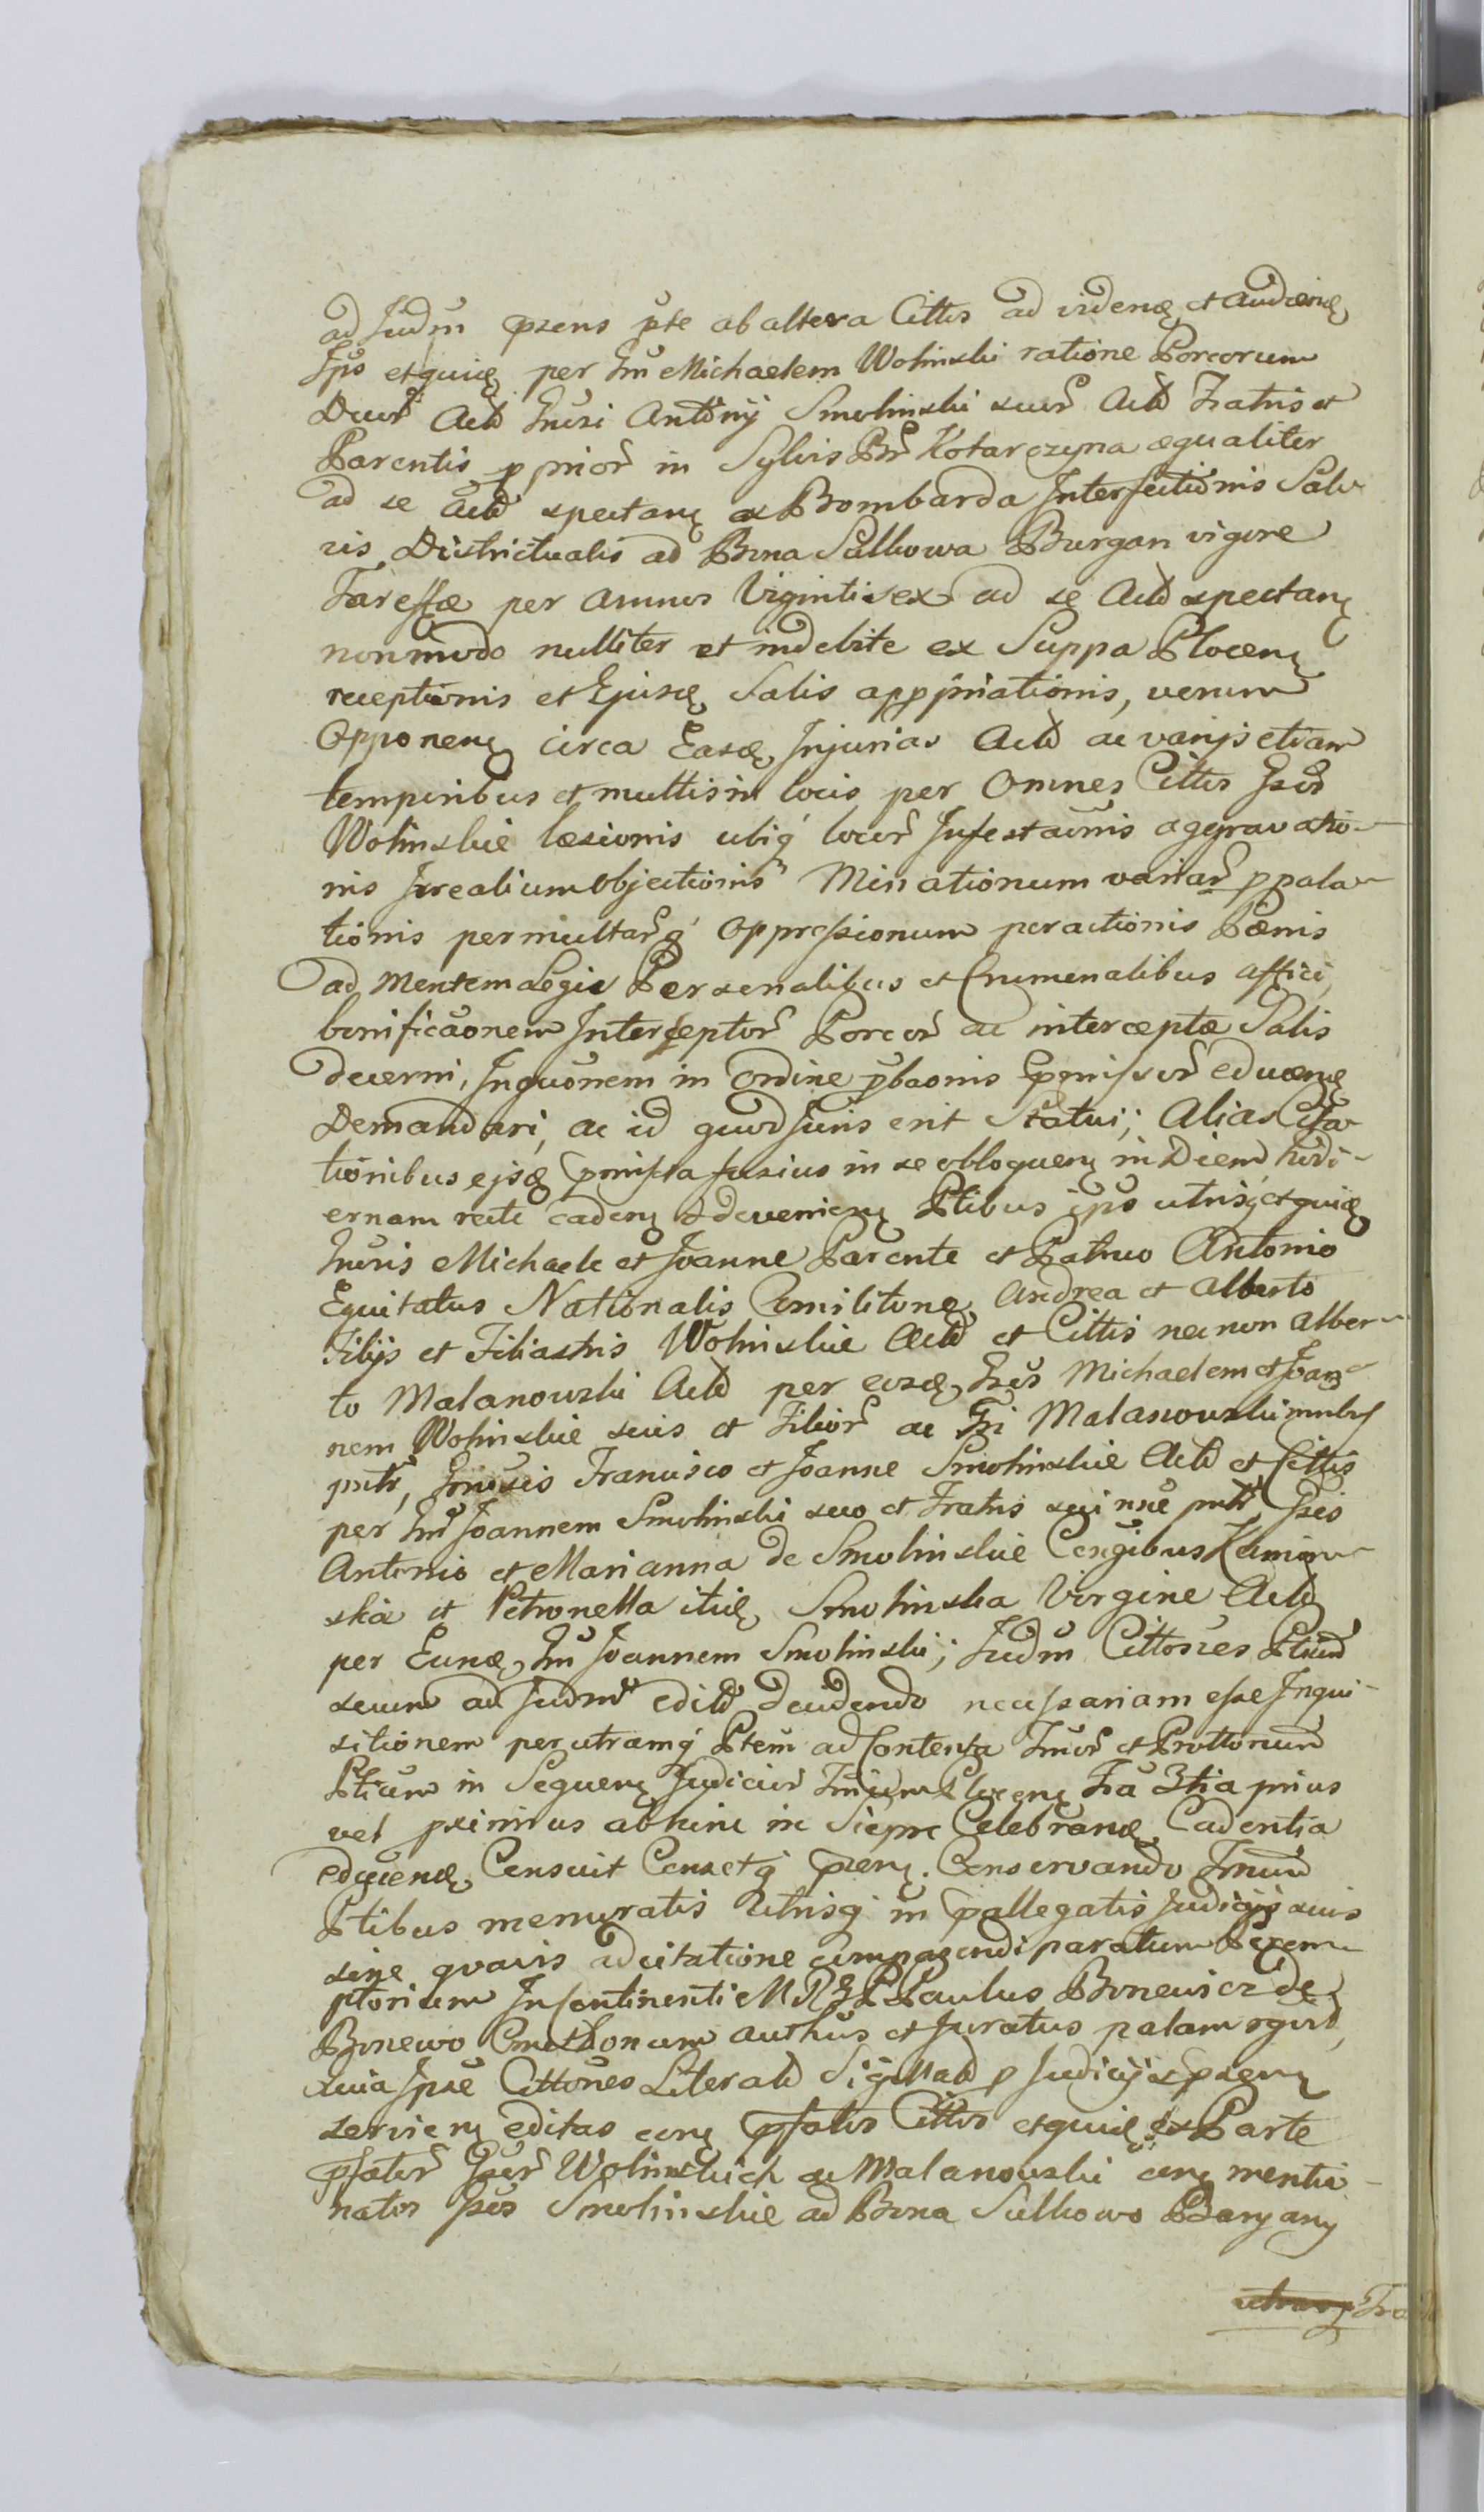 ad Judm pzens pte ab altera Cittis ad videnę et audienę
Ipo etquię per Gnu Michaelem Wolinski ratione Porcorum
Duor Actt Gnosi Antonij Smolinski suor Actt Fratris et
Parentis pprior in Sylvis Br Kotarczyna æqualiter
ad se Actt spectanę ex Bombarda Interfectionis Sal
ris Districtualis ad Bona Sulkowa Burgan vigore
Tareffæ per annos Viginti sex ad se Actt spectanę
nonmodo nulliter et indebite ex Suppa Plocenę
receptionis et Ejusę Salis apppriationis, verum
Opponenę circa Easę Injurias Actt ac varijs etiam
temporibus et multis in locis per Omnes Cittis Gsis
Wolinskie læsionis ubiq locor Infestaonis aggravatio-
nis Irrealium Objectionis Minationum variar ppala-
tionis permultarq Oppressionum peractionis Pænis
ad mentem Legis Personalibus et Crumenalibus affici,
bonificaonem Interceptor Porcor ac interceptæ Salis
decerni, Inquonem in Ordine pbaonis Ppmissor educenę
Demandari, ac id quod Juris erit Statui; Alias Cita-
tionibus ejsę pmissa fusius in se obloquenę in Diem hodi-
ernam recte cadenę et devenienę Ptibus ipo utrisq etquię
Gnosis Michaele et Joanne Parente et Patruo Antonio
Equitatus Nationalis Comilitonę Andrea et Alberto
Filijs et Filiastris Wolinskie Actt et Cittis necnon Alber-
to Malanowski Actt per eosę Gsos Michaelem et Joan-
nem Wolinskie suis et Filior ac Gsi Malanowski nnbs
pntt, Gnosis Francisco et Joanne Smolinskie Actt et Cittis
per Gnu Joannem Smolinski suo et Fratris sui nne pntt Gsis
Antonio et Marianna de Smolinskie Conjgibus Kamin-
skie et Petronella ituę Smolinska Virgine Actt
per Eunę Gnu Joannem Smolinski; Judm Cittones Ptium
secum ad Judm editt decidendo necessariam esse Inqui-
sitionem per utramq Ptem ad Contenta Gnor et Prottonum
Ptium in Sequenę Judicior Gnium Plocenę Fra 3tia prius
vel proximius abhinc in Sierpc Celebranę Cadentia
educenę Censuit Censetq pzenę. Conservando Gnium
Ptibus memoratis Utrisq in pallegatis Judicijs suis
sine quavis adcitatione comparendi paratum Perem-
ptorium Incontinenti M R G P Paulus Bonewicz de
Bonewo Cmethonum authus et Juratus palam rgvit,
quia Ipse Cittones Literatt Sigillatt p Judicijs pzenę
servienę editas conę pfatos Cittos etquię ex Parte
pfator Gsor Wolinskich ac Malanowski conę mentio-
natos Gsos Smolinskie ad Bona Sulkowo Baryany
Fra